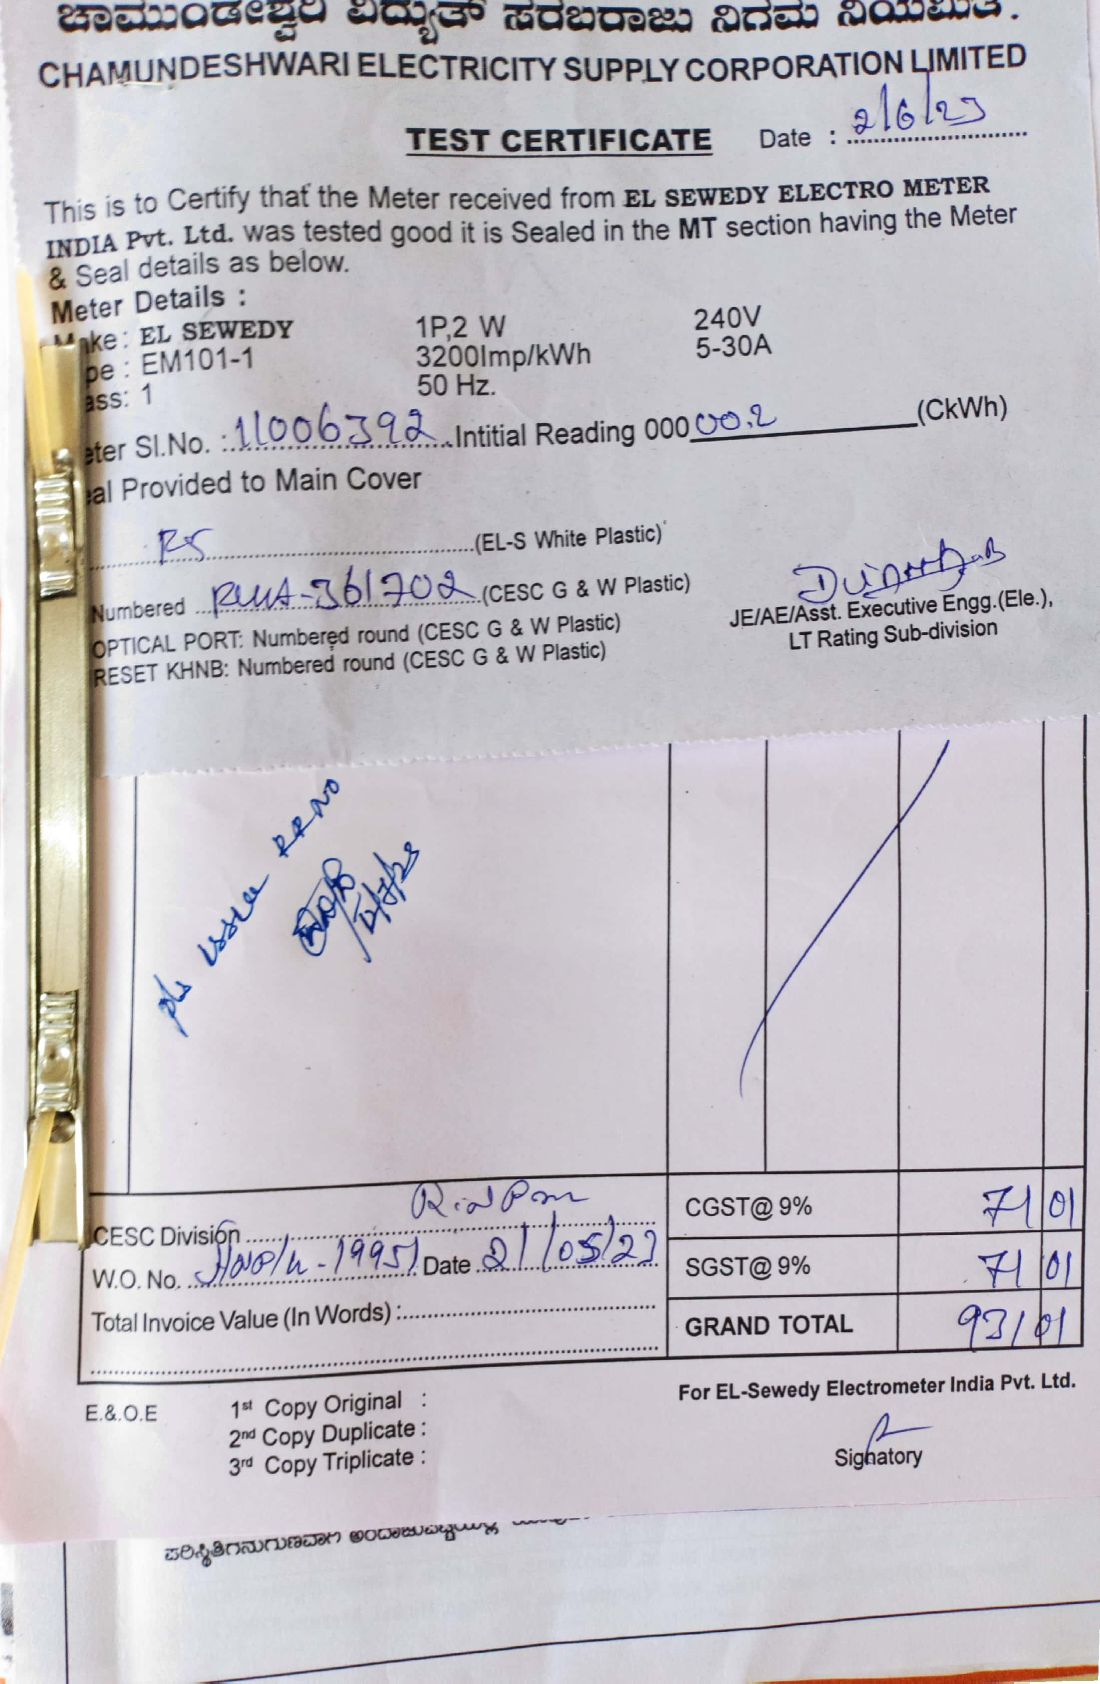 ಚಾಮುಂಡೇಶ್ವರಿ ವಿದ್ಯುತ್ ಸರಬರಾಜು ನಿಗಮ ನಿಯಮಿತ.
CHAMUNDESHWARI ELECTRICITY SUPPLY CORPORATION LIMITED
TEST CERTIFICATE Date : 2/6/23
This is to Certify that the Meter received from EL SEWEDY ELECTRO METER
INDIA Pvt. Ltd. was tested good it is Sealed in the MT section having the Meter
& Seal details as below.
Meter Details :
ke: EL SEWEDY 1P,2 W 240V
pe : EM101-1 3200Imp/kWh 5-30A
ass: 1 50 Hz.
eter Sl.No. : 11006392 Intitial Reading 000 00.2 (CkWh)
al Provided to Main Cover
RS (EL-S White Plastic)
Numbered 361702 (CESC G & W Plastic)
OPTICAL PORT: Numbered round (CESC G & W Plastic)
RESET KHNB: Numbered round (CESC G & W Plastic)
JE/AE/Asst. Executive Engg.(Ele.),
LT Rating Sub-division
pls issue RRNo
CESC Division
W.O. No. Date 21/05/23
Total Invoice Value (In Words) :
CGST@ 9% 71 01
SGST@ 9% 71 01
GRAND TOTAL 931 01
For EL-Sewedy Electrometer India Pvt. Ltd.
Signatory
E.&.O.E 1st Copy Original :
2nd Copy Duplicate :
3rd Copy Triplicate :
ಪರಿಸ್ಥಿತಿಗನುಗುಣವಾಗಿ